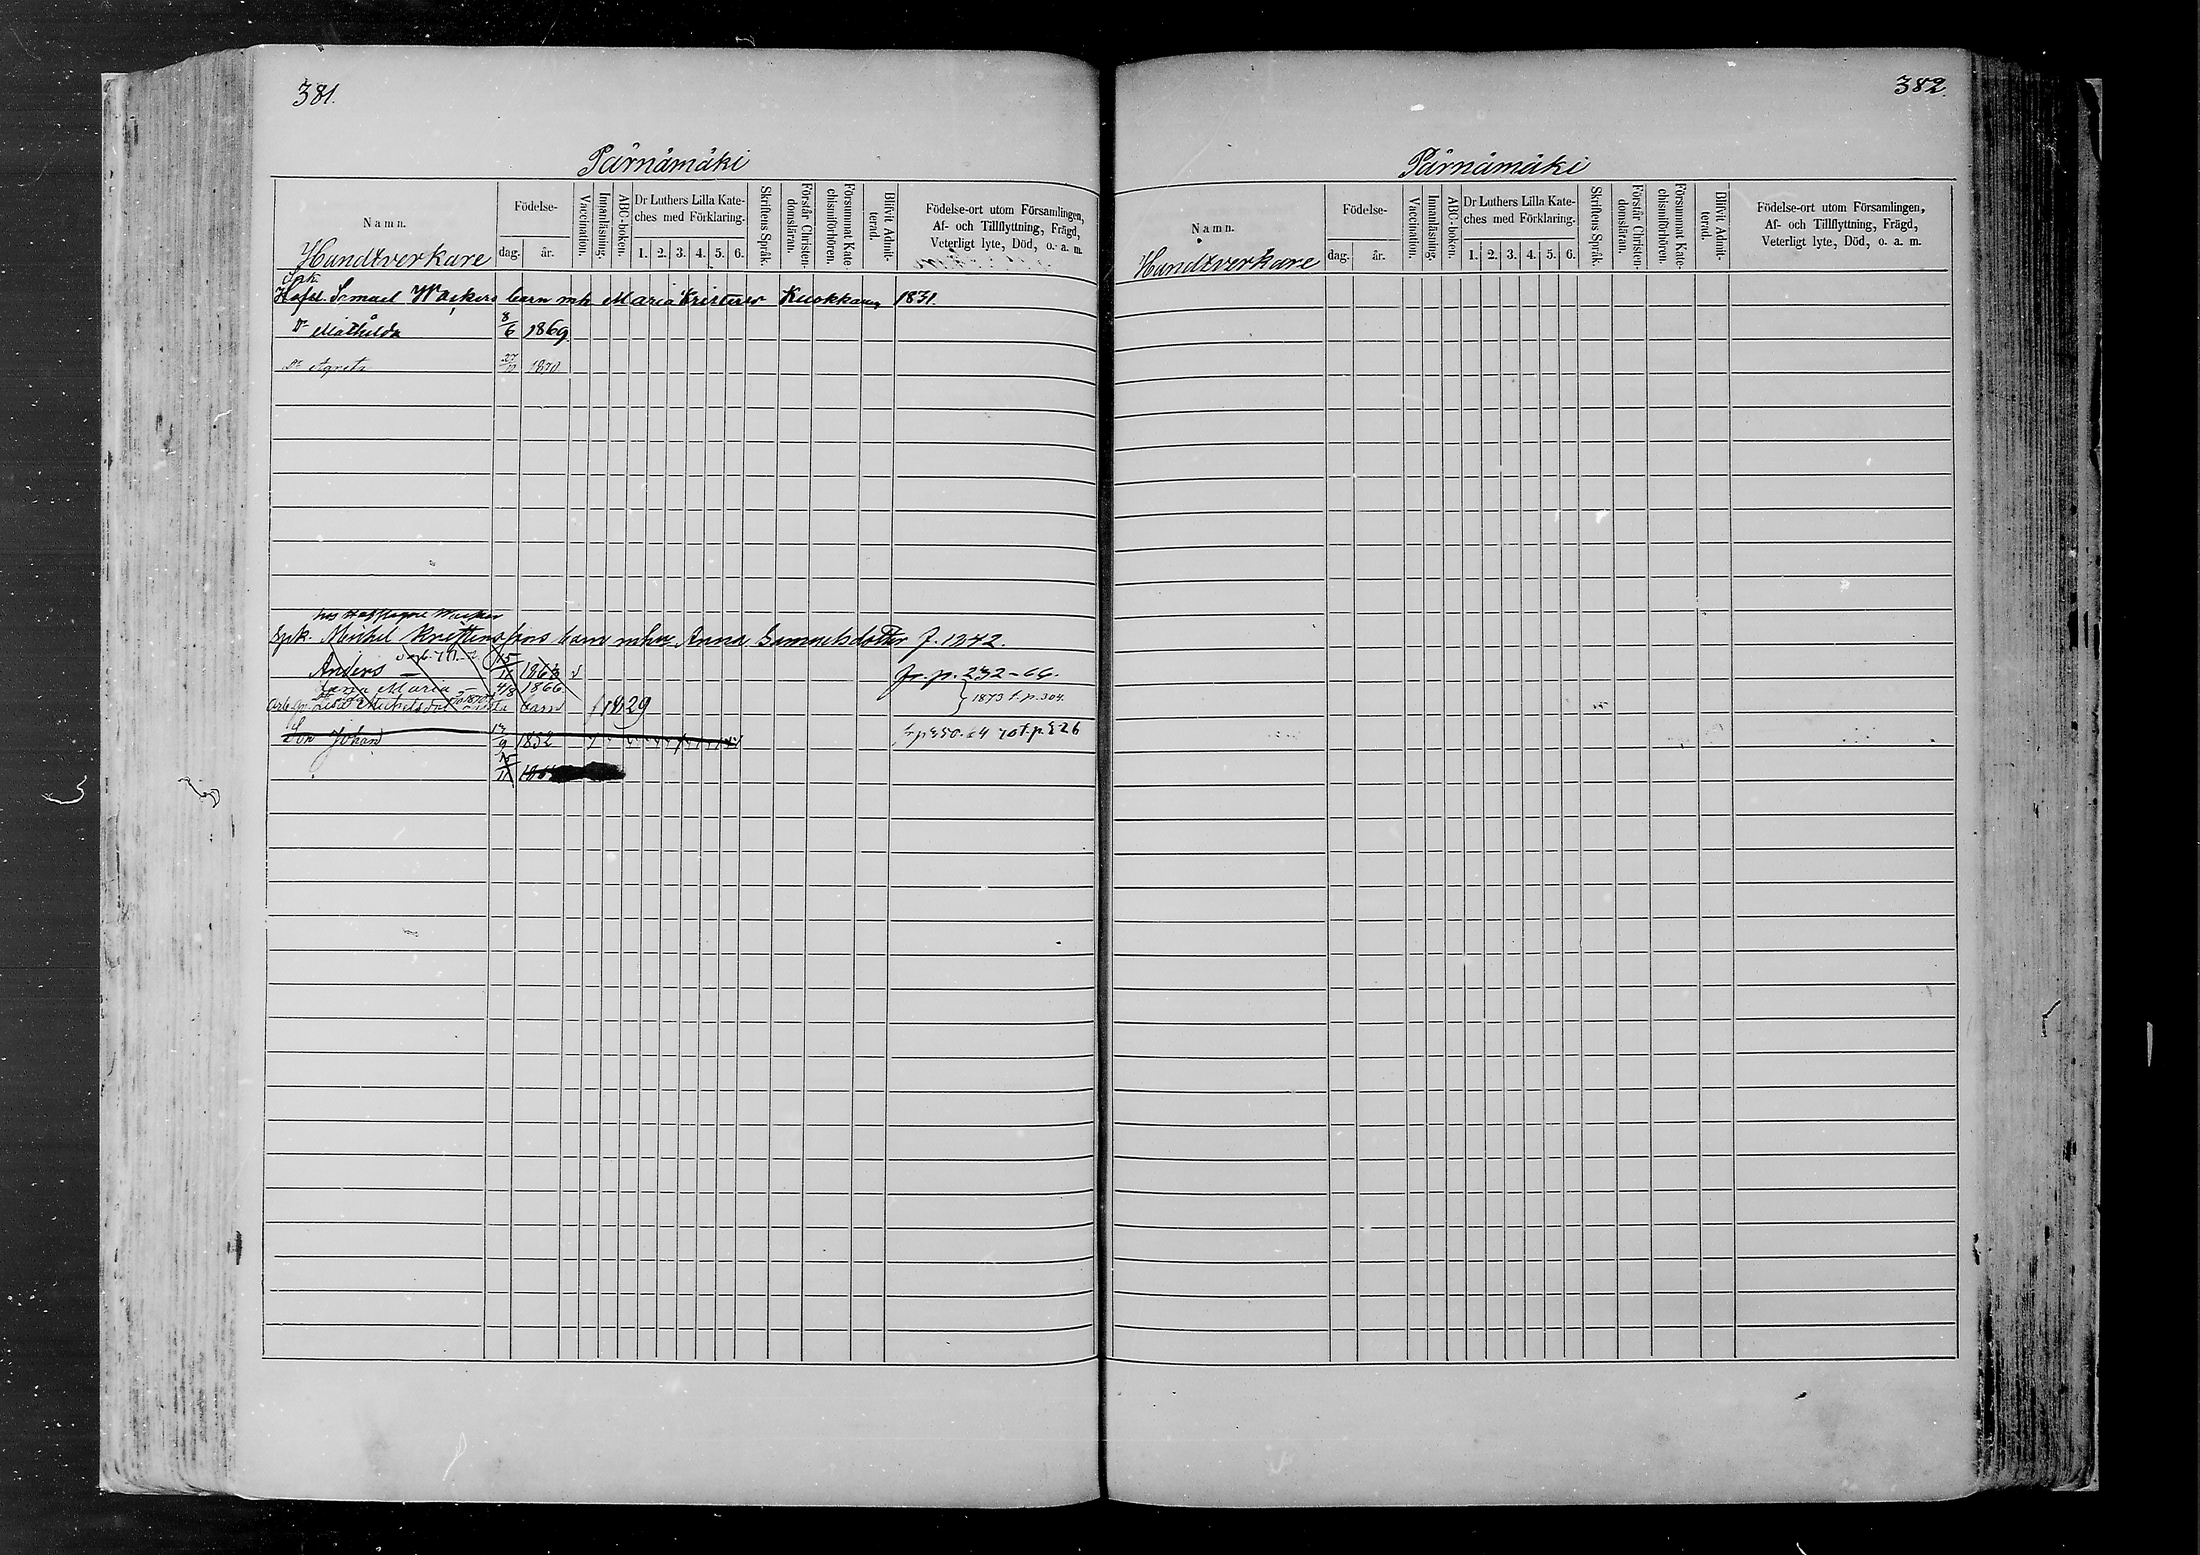 381.
Pärnämäki
Namn.
Handtverkare
Födelse-
dag.
år.
Vaccination.
Innanläsning.
ABC-boken.
Dr Luthers Lilla Kate-
ches med Förklaring.
1. 2. 3. 4. 5. 6.
Skriftens Språk.
Förstår Christen-
domsläran.
Försummat Kate-
chismiförhören.
Blifvit Admit-
terad.
Födelse-ort utom Församlingen,
Af- och Tillflyttning, Frägd,
Veterligt lyte, Död, o. a. m.
Spk.
Samuel barn mh Maria 1831.
Dr Mathilda 8/6 1869
Dr Agneta 27/10 1870
hos
Spk. Michel barn Anna Samuelsdotter f. 1242.
Anders 15/11 1866 fr. p. 232-66.
Maria 4/8 1866
1873 t. p. 304.
Lisa barn f 1829
Son Johan 17/9 1852
15/11
382
Pärnämäki
Namn.
Handtverkare
Födelse-
dag.
år.
Vaccination.
Innanläsning.
ABC-boken.
Dr Luthers Lilla Kate-
ches med Förklaring.
1. 2. 3. 4. 5. 6.
Skriftens Språk.
Förstår Christen-
domsläran.
Försummat Kate-
chismiförhören.
Blifvit Admit-
terad.
Födelse-ort utom Församlingen,
Af- och Tillflyttning, Frägd,
Veterligt lyte, Död, o. a. m.